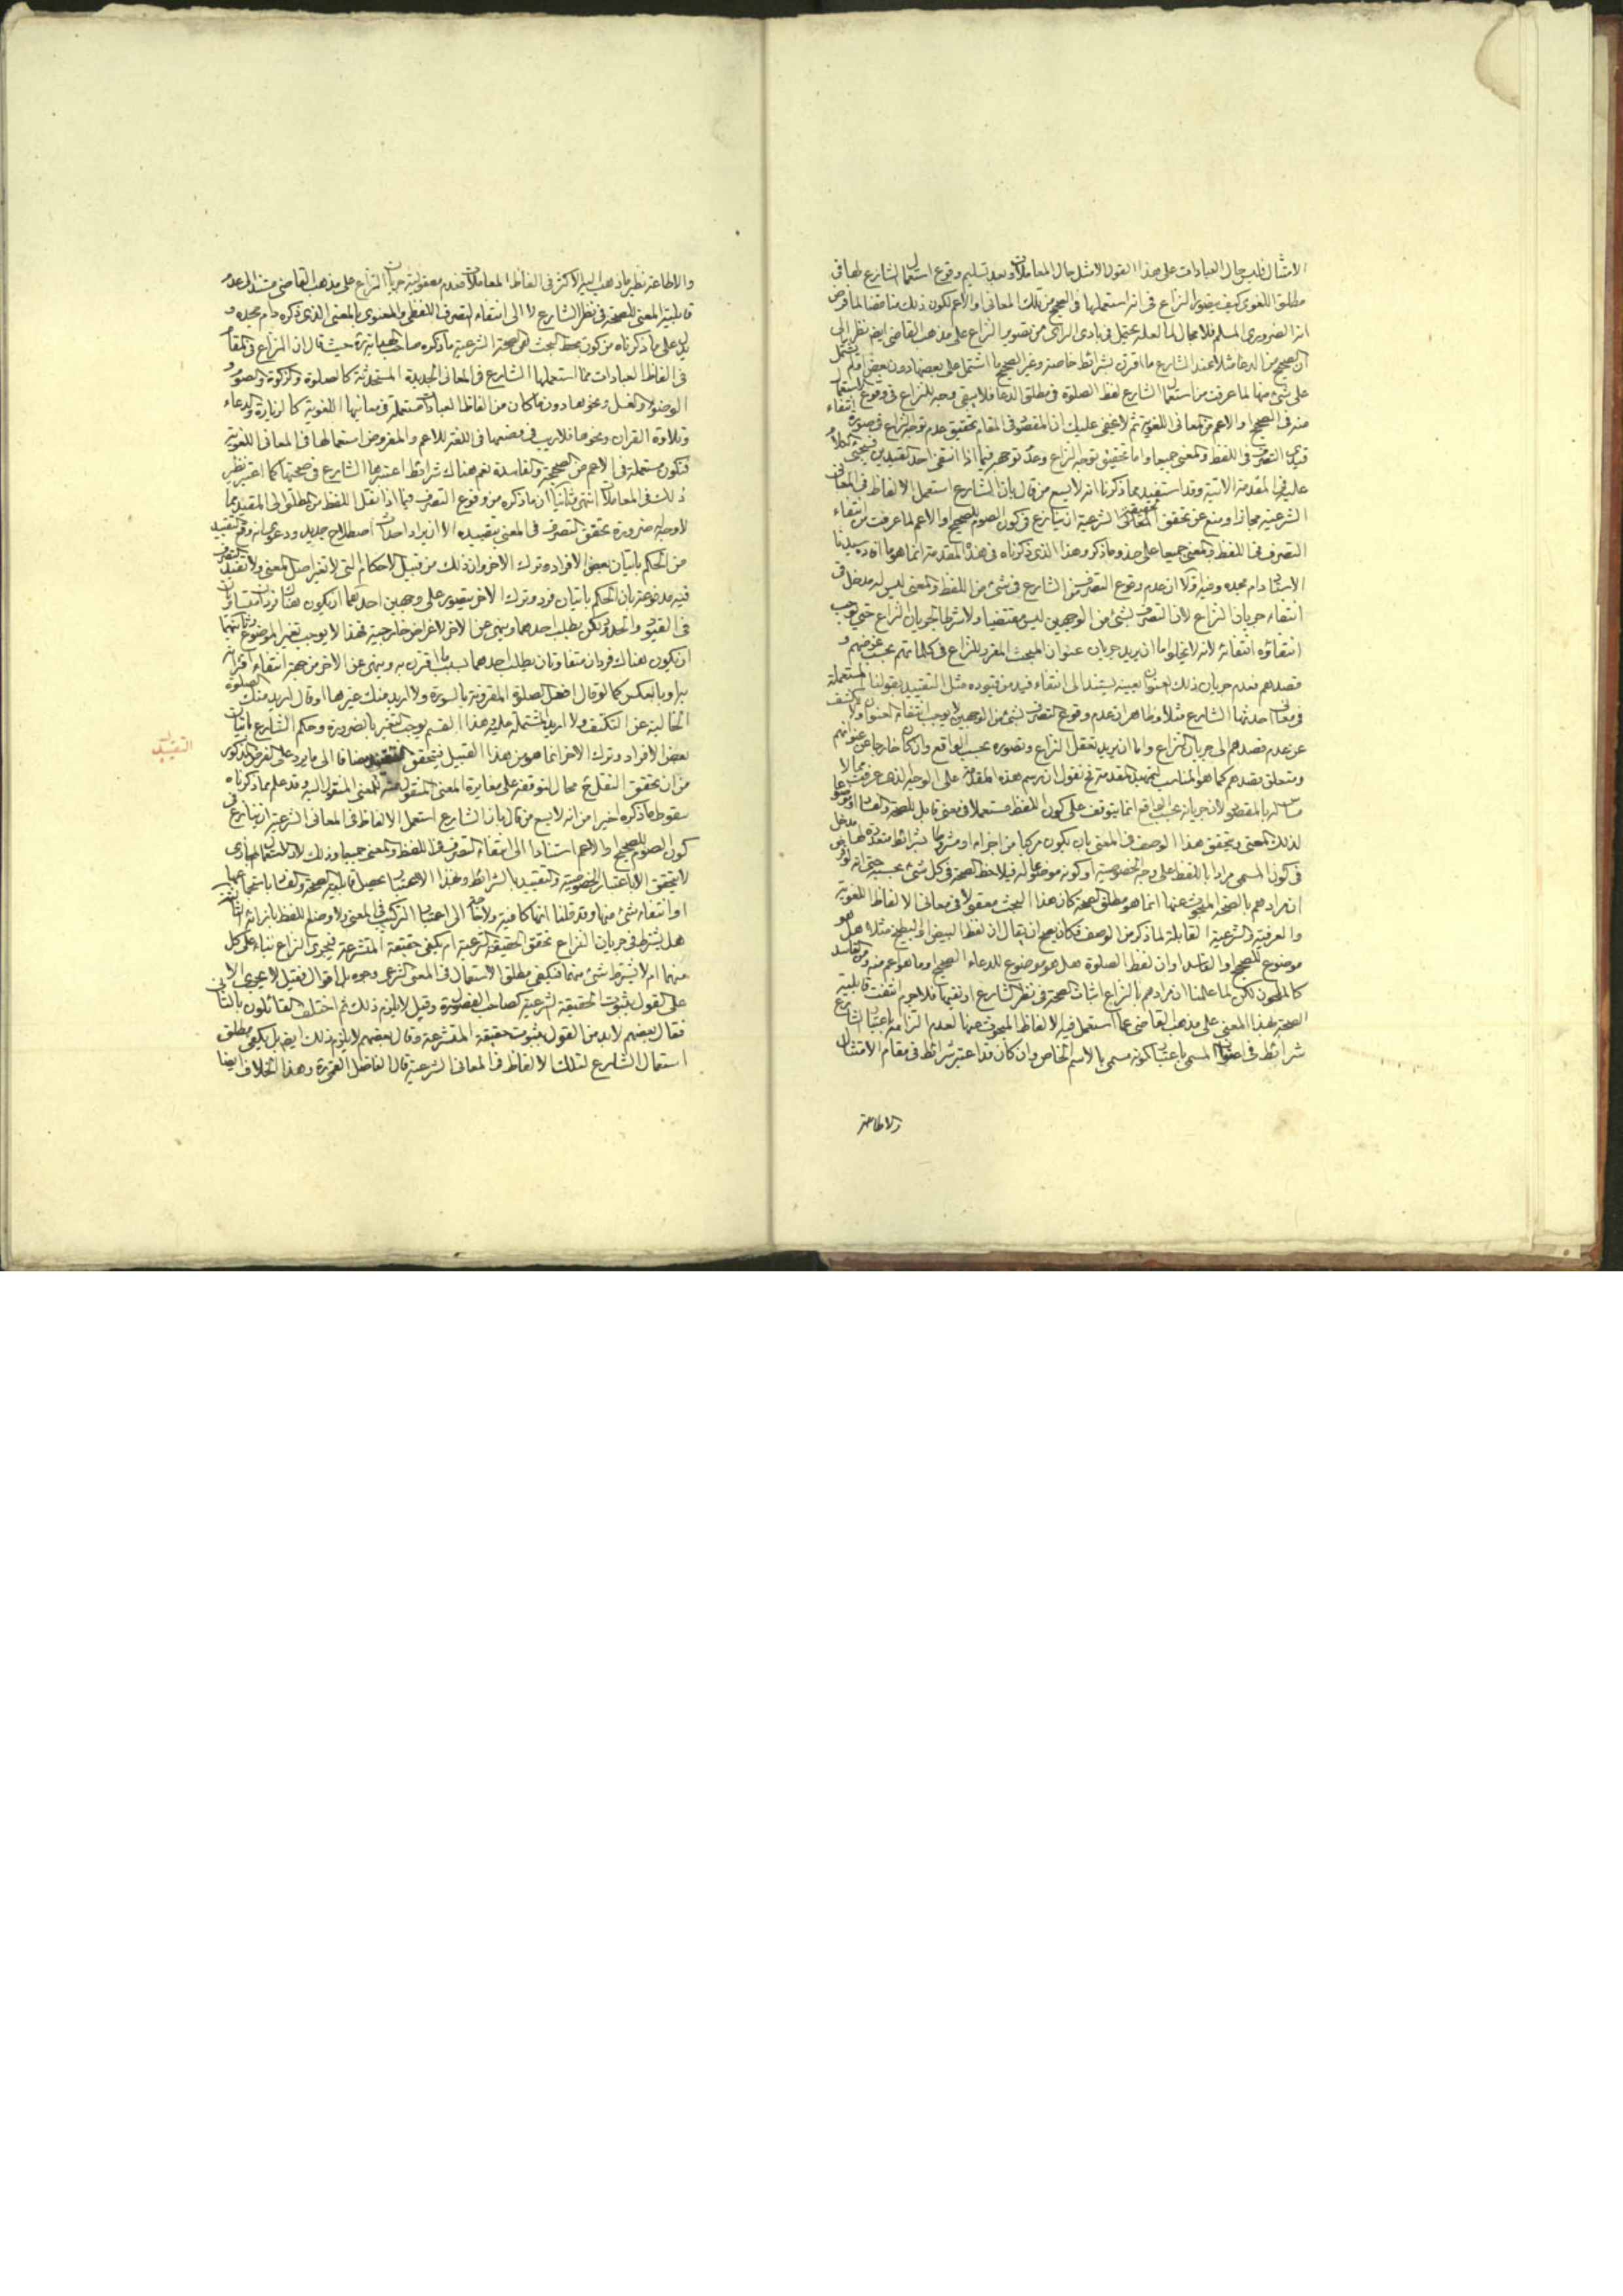 الامثال فليس حال العبادات على هذا القول الا مثل حال المعاملات وبعد تسليم وقوع استعمال الشارع لها في
مطلق اللغوي كيف يتصور النزاع في انه استعملها في الصحيح من تلك المعاني او الاعم لكون ذلك مناقضا لما فرض
انه الضروري المسلم فلا مجال لما لعله يتخيل في بادي الراي من تصوير النزاع على مذهب القاضي ايضا نظرا الى
ان الصحيح من الدعا مثلا عند الشارع ما اقترن بشرائط خاصة وغير الصحيح ما اشتمل على بعضها دون بعض او لم يشتمل
على شيء منها لما عرفت من استعمال الشارع لفظ الصلوة في مطلق الدعا فلا يبقى وجه للنزاع في وقوع الاستعمال
منه في الصحيح او الاعم من المعاني اللغوية ثم لا يخفى عليك ان المقصود في المقام تحقيق عدم توجه النزاع في صورة انتفاء
قيدي التصرف في اللفظ والمعنى جميعا واما تحقيق توجه النزاع وعدم توجهه فيما اذا انتفى احد القيدين فيجيء الكلام
عليه في المقدمة الاتية وقد استفيد مما ذكرنا انه لا يسع من قال بان الشارع استعمل الالفاظ في المعاني
الشرعية مجازا ومنع عن تحقق الحقيقة الشرعية ان ينازع في كون الصوم للصحيح او الاعم لما عرفت من انتفاء
التصرف في اللفظ والمعنى جميعا على حذو ما ذكر وهذا الذي ذكرناه في هذه المقدمة انما هو ما افاده سيدنا
الاستاد دام مجده وفيه اولا ان عدم وقوع التصرف من الشارع في شيء من اللفظ والمعنى ليس له مدخل في
انتفاء جريان النزاع لان التصرف بشيء من الوجهين ليس مقتضيا ولا شرطا لجريان النزاع حتى يوجب
انتفاؤه انتفائه لانه لا يخلو اما ان يريد جريان عنوان المبحث المقرر للنزاع في كلماتهم بحسب غرضهم و
قصدهم فعدم جريان ذلك العنوان بعينه يستند الى انتفاء قيد من قيوده مثل التقييد بقولنا المستعملة
في معاني احدثها الشارع مثلا وظاهر ان عدم وقوع التصرف بشيء من الوجهين لا يوجب انتفاء العنوان ولا يكشف
عن عدم قصدهم الى جريان النزاع واما ان يريد تعقل النزاع وتصوره بحسب الواقع وان كان خارجا عن عنوانهم
ومتعلق بقصدهم كما هو المناسب لتمهيد المقدمة فح نقول ان رسم هذه المقدمة على الوجه الذي عرفت مما لا
مساس له بالمقصود لان جريانه بحسب الواقع انما يتوقف على كون اللفظ مستعملا في معنى قابل للصحة والفساد او موضوعا
لذلك المعنى ويتحقق هذا الوصف في المعنى بان يكون مركبا من اجزاء او مشروطا بشرائط متعددة لها مدخل
في كون المسمى مرادا باللفظ على وجه الخصوصية او كونه موضوعا له فيلاحظ الصحة في كل شيء بحسبه حتى انه لو فرض
ان مرادهم بالصحة المبحوث عنها انما هو مطلق الصحة كان هذا البحث معقولا في معاني الالفاظ اللغوية
والعرفية والشرعية القابلة لما ذكر من الوصف فكان يصح ان يقال ان لفظ البيض او البطيخ مثلا هل هو
موضوع للصحيح او الفاسد او ان لفظ الصلوة هل هو موضوع للدعاء الصحيح او ما هو اعم منه ومن الفاسد
كالملحون لكن لما علمنا ان مرادهم بالنزاع اثبات الصحة في نظر الشارع او نفيها فلا جرم انتفت قابلية
الصحة بهذا المعنى على مذهب القاضي عما استعمل فيه الالفاظ المبحوث عنها لعدم التزامه باعتبار الشارع
شرائط في عنوان المسمى باعتبار كونه مسمى بالاسم الخاص وان كان قد اعتبر شرائط في مقام الامتثال
والاطاعة
والاطاعة نظير ما ذهب اليه الاكثر في الفاظ المعاملات فعدم معقولية جريان النزاع على مذهب القاضي مستند لعدم
قابلية المعنى للصحة في نظر الشارع لا الى انتفاء التصرف اللفظي والمعنوي بالمعنى الذي ذكره دام مجده و
يدل على ما ذكرناه من كون محط البحث هي الصحة الشرعية ما ذكره صاحب الهداية ره حيث قال ان النزاع في المقام
في الفاظ العبادات مما استعملها الشارع في المعاني الجديدة المستحدثة كالصلوة والزكوة والصوم و
الوضوء والغسل ونحوها دون ما كان من الفاظ العبادات مستعملة في معانيها اللغوية كالزيارة والدعاء
وتلاوة القران ونحوها فلا ريب في وضعها في اللغة للاعم والمفروض استعمالها في المعاني اللغوية
فتكون مستعملة في الاعم من الصحيحة والفاسدة نعم هناك شرائط اعتبرها الشارع في صحتها كما اعتبر نظير
ذلك في المعاملات انتهى وثانيا ان ما ذكره من وقوع التصرف فيما اذا نقل اللفظ من المطلق الى المقيد مما
لا وجه له ضرورة تحقق التصرف في المعنى بتقييده الا ان يراد احداث اصطلاح جديد ودعوى انه وقع التقييد
من الحكم باتيان بعض الافراد وترك الاخر وان ذلك من قبيل الاحكام التي لا تغير اصل المعنى ولا تفيد التصرف
فيه مدفوعة بان الحكم باتيان فرد وترك الاخر يتصور على وجهين احدهما ان يكون هناك فردان متساويان
في القيود والحدود لكن يطلب احدهما وينهى عن الاخر لاغراض خارجية فهذا لا يوجب تغير الموضوع وثانيهما
ان يكون هناك فردان متفاوتان يطلب احدهما بسبب ما اقترن به وينهى عن الاخر من جهة انتفاء اقترانه
به او بالعكس كما لو قال افعل الصلوة المقرونة بالسورة ولا اريد منك غيرها او قال اريد منك الصلوة
الخالية عن التكتف ولا اريد المشتملة عليه وهذا القسم يوجب التغير بالضرورة وحكم الشارع باتيان
بعض الافراد وترك الاخر انما هو من هذا القبيل فيتحقق التقييد مضافا الى ما يرد على الفرض المذكور
التقييد
من ان تحقق النقل ح محال لتوقفه على مغايرة المعنى المنقول منه للمعنى المنقول اليه وقد علم مما ذكرناه
سقوط ما ذكره اخيرا من انه لا يسع من قال بان الشارع استعمل الالفاظ في المعاني الشرعية ان ينازع في
كون الصوم للصحيح او الاعم استنادا الى انتفاء التصرف في اللفظ والمعنى جميعا وذلك لان الاستعمال المجازي
لا يتحقق الا باعتبار الخصوصية والتقييد بالشرائط وبهذا الاعتبار يحصل قابلية الصحة والفساد باستجماعها
او انتفاء شيء منها وقد قلنا انها كافية ولا حاجة الى اعتبار التركيب في المعنى ولا وضع اللفظ بازائه الثانية
هل يشترط في جريان النزاع تحقق الحقيقة الشرعية ام يكفي حقيقة المتشرعة فيجري النزاع بناء على كل
منهما ام لا يشترط شيء منهما فيكفي مطلق الاستعمال في المعنى الشرعي وجوه بل اقوال فقيل لا يجري الا
على القول بثبوت الحقيقة الشرعية كصاحب الفصول ره وقيل لا يلزم ذلك ثم اختلف القائلون بالثاني
فقال بعضهم لا بد من القول بثبوت حقيقة المتشرعة وقال بعضهم لا يلزم ذلك ايضا بل يكفي مطلق
استعمال الشارع لتلك الالفاظ في المعاني الشرعية قال الفاضل القمي ره وهذا الخلاف ايضا